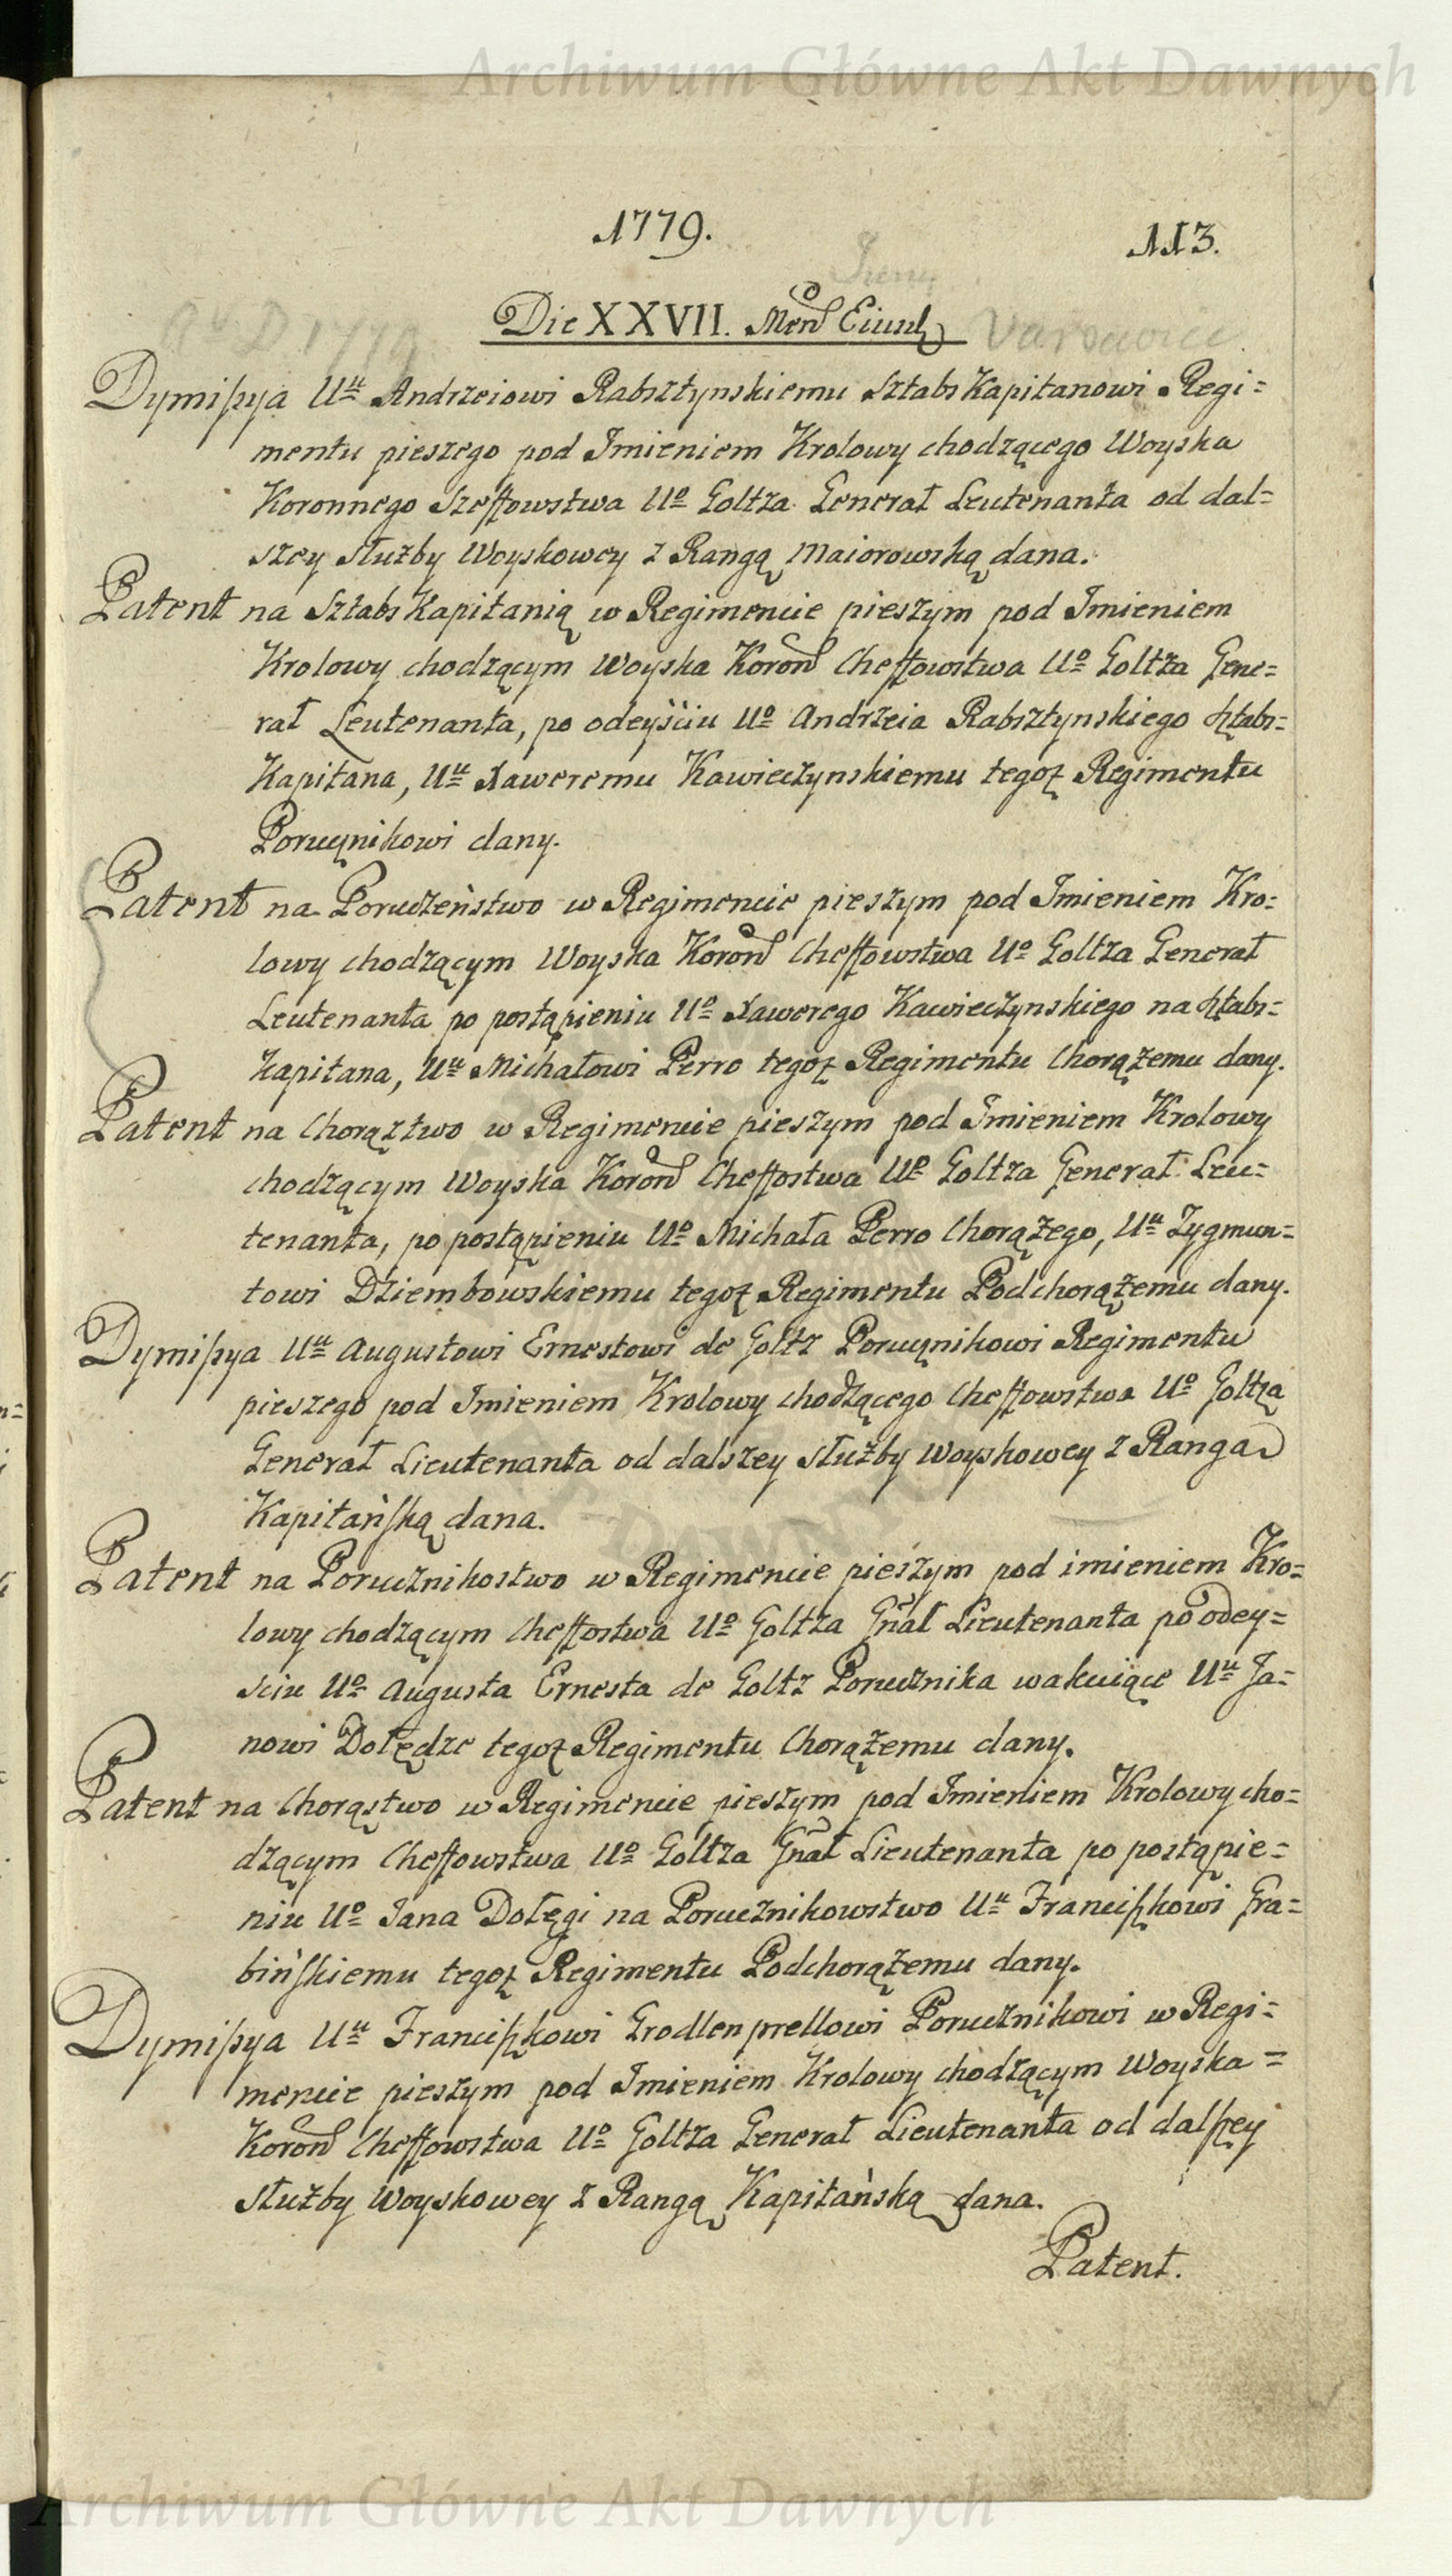 Archiwum Główne Akt Dawnych
1779.
113.
Die XXVII. Men͠ Eiusd
Varsavia
A D 1779
Dymissya Uu Andrzeiowi Rabsztynskiemu Sztabs Kapitanowi Regi=
mentu pieszego pod Imieniem Krolowy chodzącego Woyska
Koronnego Szeffowstwa Uo Goltza Generał Leutenanta od dal=
szey służby Woyskowey z Rangą Maiorowską dana.
Patent na Sztabs Kapitanią w Regimencie pieszym pod Imieniem
Krolowy chodzącym Woyska Koron͠ Cheffowstwa Uo Goltza Gene=
rał Leutenanta, po odeyściu Uo Andrzeia Rabsztynskiego Sztabs=
Kapitana, Uu Xaweremu Kawieczynskiemu tegoż Regimentu
Porucznikowi dany.
Patent na Poruczeństwo w Regimencie pieszym pod Imieniem Kro=
lowy chodzącym Woyska Koron͠ Cheffowstwa Uo Goltza Generał
Leutenanta po postąpieniu Uo Xawerego Kawieczynskiego na Sztabs=
Kapitana, Uu Michałowi Perro tegoż Regimentu Chorążemu dany.
Patent na Chorąztwo w Regimencie pieszym pod Imieniem Krolowy
chodzącym Woyska Koron͠ Cheffostwa Uo Goltza Generał Leu=
tenanta, po postąpieniu Uo Michała Perro Chorążego, Uu Zygmun=
towi Dziembowskiemu tegoż Regimentu Podchorążemu dany.
Dymissya Uu Augustowi Ernestowi de Goltz Porucznikowi Regimentu
pieszego pod Imieniem Krolowy chodzącego Cheffowstwa Uo Goltza
Generał Lieutenanta od dalszey służby Woyskowey z Ranga
Kapitańską dana.
Patent na Porucznikostwo w Regimencie pieszym pod imieniem Kro=
lowy chodzącym Cheffostwa Uo Goltza Gn͠ał Lieutenanta po odey=
sciu Uo Augusta Ernesta de Goltz Porucznika wakuiące Uu Ja=
nowi Dołędze tegoż Regimentu Chorążemu dany.
Patent na Chorąstwo w Regimencie pieszym pod Imieniem Krolowy cho=
dzącym Cheffowstwa Uo Goltza Gn͠ał Lieutenanta po postąpie=
niu Uo Jana Dołęgi na Porucznikowstwo Uu Franciszkowi Gra=
bińskiemu tegoż Regimentu Podchorążemu dany.
Dymissya Uu Franciszkowi Grodlenprellowi Porucznikowi w Regi=
mencie pieszym pod Imieniem Krolowy chodzącym Woyska=
Koron͠ Cheffowstwa Uo Goltza Generał Lieutenanta od dalszey
służby Woyskowey z Rangą Kapitańską dana.
Patent.
Archiwum Główne Akt Dawnych